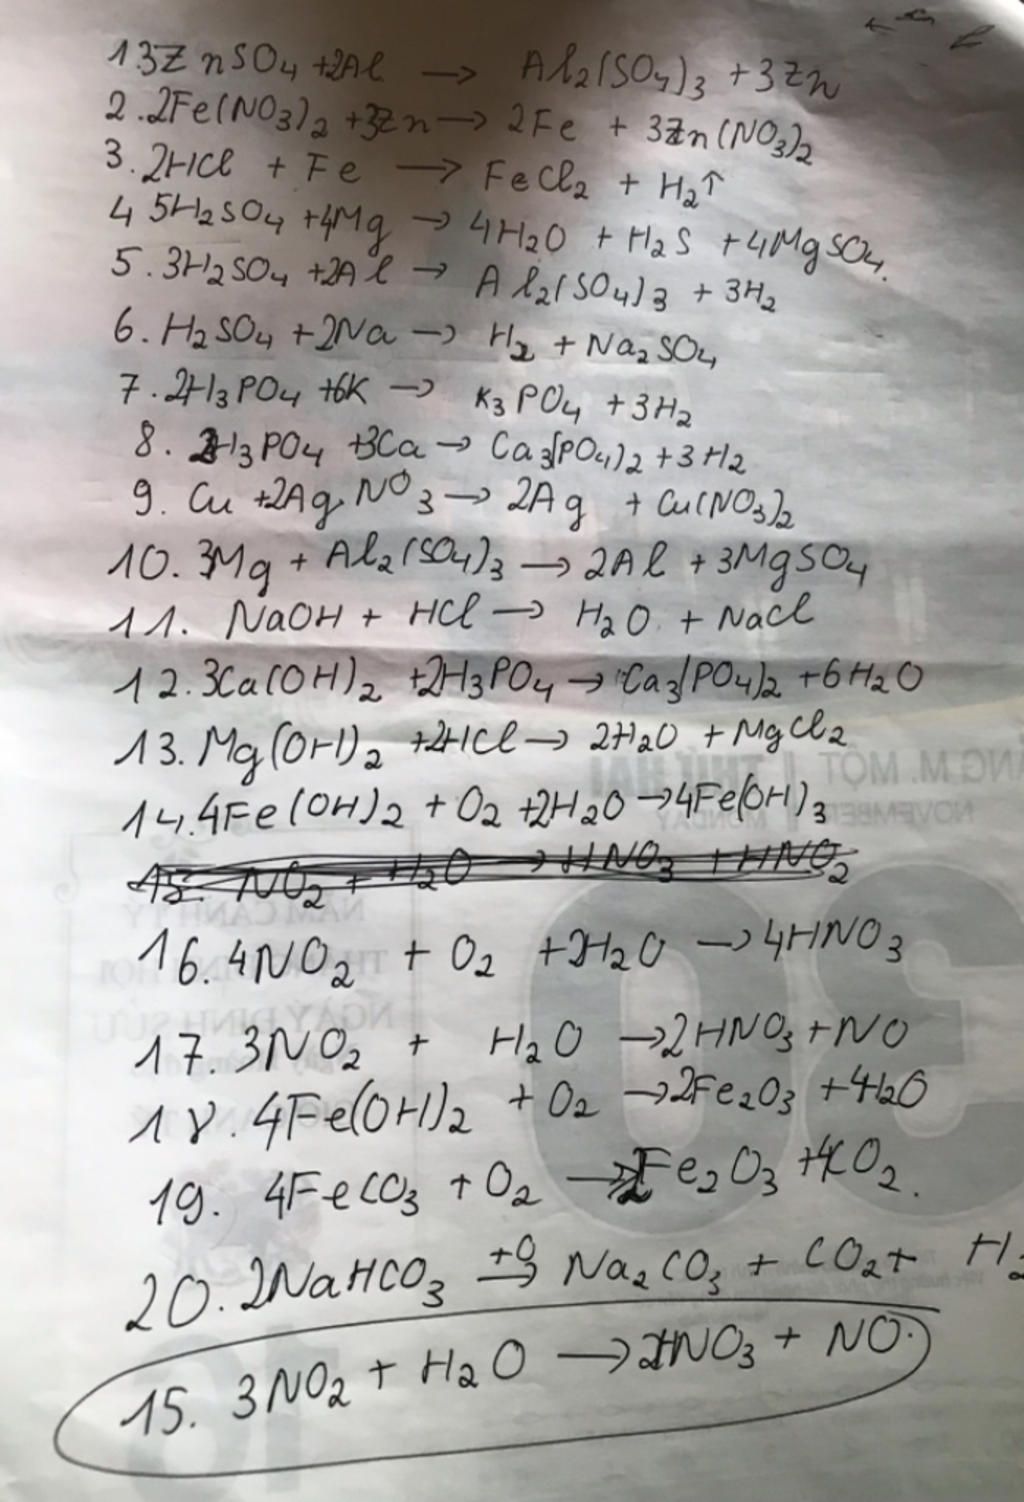 1 3ZnSO₄ + 2Al → Al₂(SO₄)₃ + 3Zn
2. 2Fe(NO₃)₂ + 3Zn → 2Fe + 3Zn(NO₃)₂
3. 2HCl + Fe → FeCl₂ + H₂↑
4 5H₂SO₄ + 4Mg → 4H₂O + H₂S + 4MgSO₄.
5. 3H₂SO₄ + 2Al → Al₂(SO₄)₃ + 3H₂
6. H₂SO₄ + 2Na → H₂ + Na₂SO₄
7. 2H₃PO₄ + 6K → K₃PO₄ + 3H₂
8. 2H₃PO₄ + 3Ca → Ca₃(PO₄)₂ + 3H₂
9. Cu + 2AgNO₃ → 2Ag + Cu(NO₃)₂
10. 3Mg + Al₂(SO₄)₃ → 2Al + 3MgSO₄
11. NaOH + HCl → H₂O + NaCl
12. 3Ca(OH)₂ + 2H₃PO₄ → Ca₃(PO₄)₂ + 6H₂O
13. Mg(OH)₂ + 2HCl → 2H₂O + MgCl₂
14. 4Fe(OH)₂ + O₂ + 2H₂O → 4Fe(OH)₃
15. NO₂ + H₂O → HNO₃ + HNO₂
16. 4NO₂ + O₂ + 2H₂O → 4HNO₃
17. 3NO₂ + H₂O → 2HNO₃ + NO
18. 4Fe(OH)₂ + O₂ → 2Fe₂O₃ + 4H₂O
19. 4FeCO₃ + O₂ → 2Fe₂O₃ + 4CO₂.
20. 2NaHCO₃ → Na₂CO₃ + CO₂ + H₂
15. 3NO₂ + H₂O → 2HNO₃ + NO.